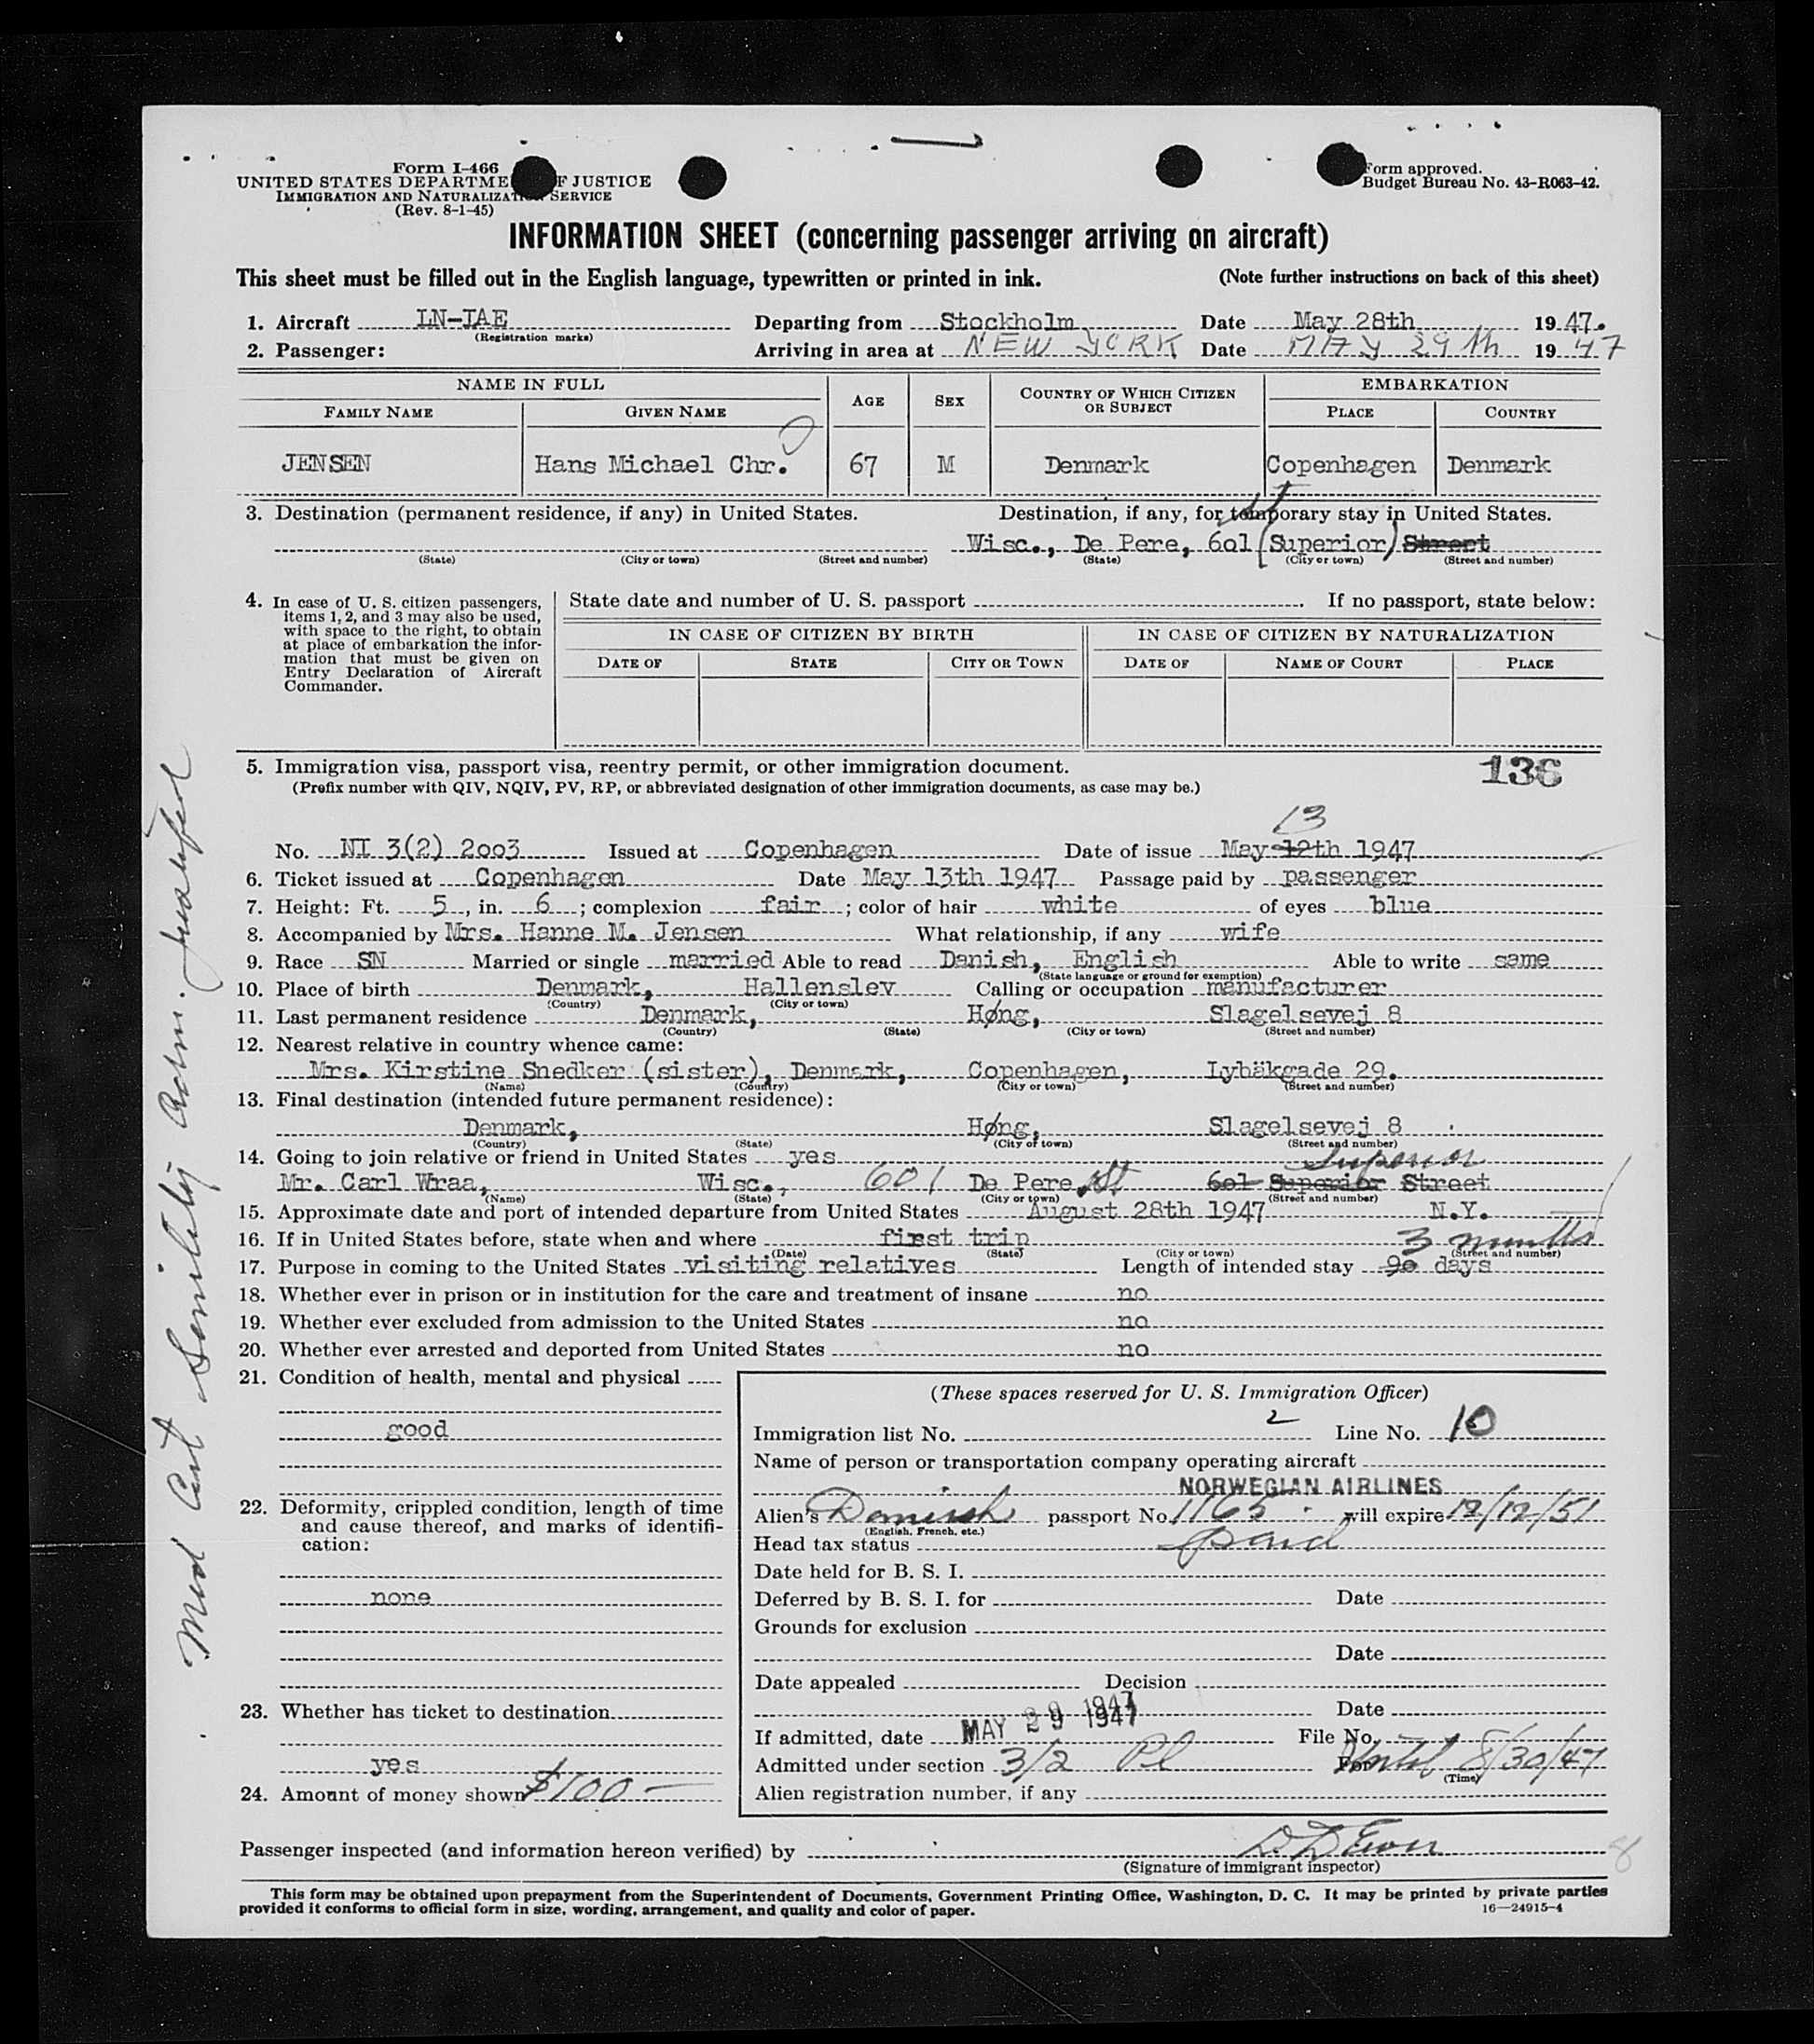 Form I-466
UNITED STATES DEPARTME F JUSTICE
IMMIGRATION AND NATURALIZATION SERVICE
(Rev. 8-1-45)
Form approved.
Budget Bureau No. 43-R063-42.
INFORMATION SHEET (concerning passenger arriving on aircraft)
This sheet must be filled out in the English language, typewritten or printed in ink. (Note further instructions on back of this sheet)
1. Aircraft LN-IAE Departing from Stockholm Date May 28th 1947.
(Registration marks)
2. Passenger: Arriving in area at NEW YORK Date MAY 29th 1947
NAME IN FULL AGE SEX COUNTRY OF WHICH CITIZEN OR SUBJECT EMBARKATION
FAMILY NAME GIVEN NAME PLACE COUNTRY
JENSEN Hans Michael Chr. 67 M Denmark Copenhagen Denmark
3. Destination (permanent residence, if any) in United States. Destination, if any, for temporary stay in United States.
Wisc., De Pere, 601 (Superior) Street
(State) (City or town) (Street and number) (State) (City or town) (Street and number)
4. In case of U. S. citizen passengers, items 1, 2, and 3 may also be used, with space to the right, to obtain at place of embarkation the information that must be given on Entry Declaration of Aircraft Commander.
State date and number of U. S. passport . If no passport, state below:
IN CASE OF CITIZEN BY BIRTH IN CASE OF CITIZEN BY NATURALIZATION
DATE OF STATE CITY OR TOWN DATE OF NAME OF COURT PLACE
5. Immigration visa, passport visa, reentry permit, or other immigration document. 136
(Prefix number with QIV, NQIV, PV, RP, or abbreviated designation of other immigration documents, as case may be.)
13
No. NI 3(2) 2003 Issued at Copenhagen Date of issue May 12th 1947
6. Ticket issued at Copenhagen Date May 13th 1947 Passage paid by passenger
7. Height: Ft. 5, in. 6; complexion fair; color of hair white of eyes blue
8. Accompanied by Mrs. Hanne M. Jensen What relationship, if any wife
9. Race SN Married or single married Able to read Danish, English Able to write same
(State language or ground for exemption)
10. Place of birth Denmark, Hallenslev Calling or occupation manufacturer
(Country) (City or town)
11. Last permanent residence Denmark, Høng, Slagelsevej 8
(Country) (State) (City or town) (Street and number)
12. Nearest relative in country whence came:
Mrs. Kirstine Snedker (sister), Denmark, Copenhagen, Lybäkgade 29.
(Name) (Country) (City or town) (Street and number)
13. Final destination (intended future permanent residence):
Denmark, Høng, Slagelsevej 8
(Country) (State) (City or town) (Street and number)
14. Going to join relative or friend in United States yes
Superior
Mr. Carl Wraa, Wisc., 601 De Pere, St 601 Superior Street
(Name) (State) (City or town) (Street and number)
15. Approximate date and port of intended departure from United States August 28th 1947 N.Y.
16. If in United States before, state when and where first trip 3 months
(Date) (State) (City or town) (Street and number)
17. Purpose in coming to the United States visiting relatives Length of intended stay 90 days
18. Whether ever in prison or in institution for the care and treatment of insane no
19. Whether ever excluded from admission to the United States no
20. Whether ever arrested and deported from United States no
21. Condition of health, mental and physical
good
22. Deformity, crippled condition, length of time and cause thereof, and marks of identification:
none
23. Whether has ticket to destination
yes
24. Amount of money shown $100 —
(These spaces reserved for U. S. Immigration Officer)
Immigration list No. 2 Line No. 10
Name of person or transportation company operating aircraft
NORWEGIAN AIRLINES
Alien's Danish passport No. 1165 will expire 12/12/51
(English, French, etc.)
Head tax status paid
Date held for B. S. I.
Deferred by B. S. I. for Date
Grounds for exclusion
Date
Date appealed Decision
Date
If admitted, date MAY 29 1947 File No.
Admitted under section 3/2 Pl For Until 8/30/47
(Time)
Alien registration number, if any
Passenger inspected (and information hereon verified) by
(Signature of immigrant inspector)
8
This form may be obtained upon prepayment from the Superintendent of Documents, Government Printing Office, Washington, D. C. It may be printed by private parties
provided it conforms to official form in size, wording, arrangement, and quality and color of paper. 16—24915-4
Med Cert Senility Adm.